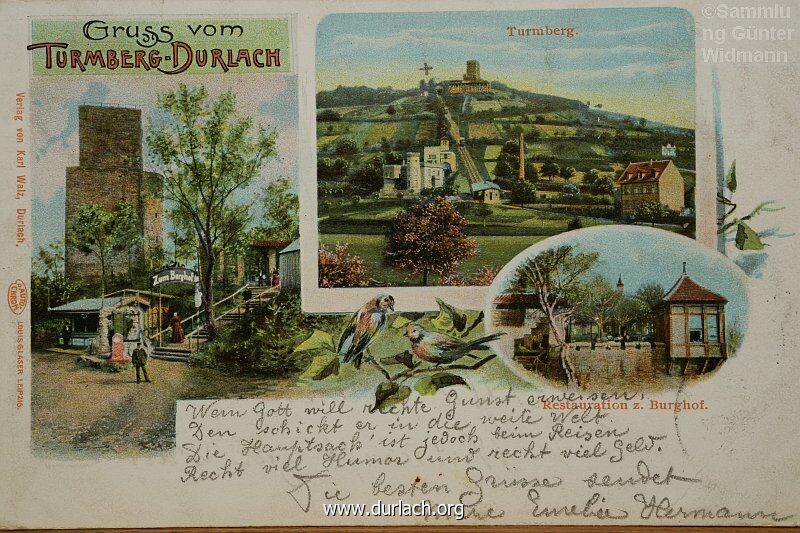 Gruss vom
Turmberg-Durlach
Turmberg.
©Sammlu
ng Günter
Widmann
Verlag von Karl Walz, Durlach.
AUTO
CHROM
LOUIS GLASER LEIPZIG.
Zum Burghof
Restauration z. Burghof.
Wem Gott will rechte Gunst erweisen,
Den schickt er in die weite Welt
Die Hauptsach' ist jedoch beim Reisen
Recht viel Humor und recht viel Geld.
Die besten Grüsse sendet
Emelie Hermann
www.durlach.org